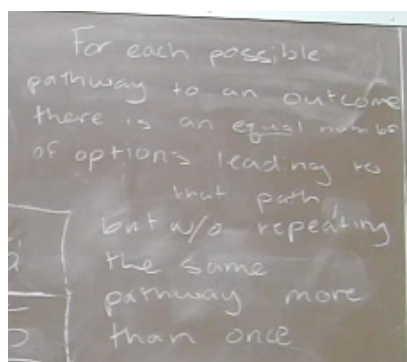 For each possible
pathway to an outcome
there is an equal number
of options leading to
that path
but w/o repeating
the same
pathway more
than once